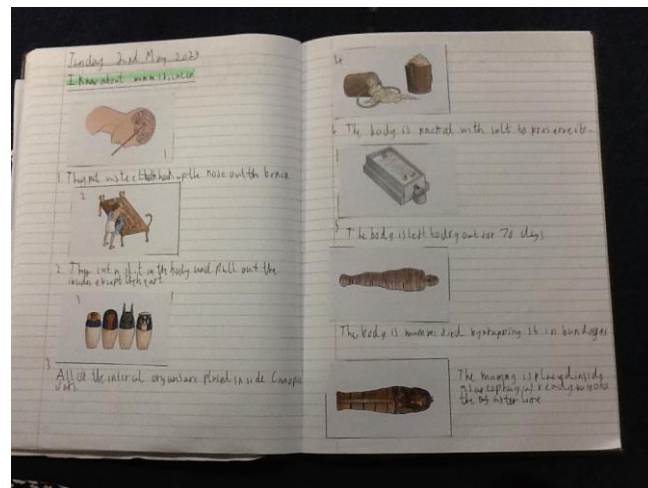 Tuesday 2nd May 2023
I know about mummification
1
1. They put
up the nose
the brain
2
2. They cut a slit in the body and pull out the
insides except the heart
3
3
All of the internal organs are placed inside Canopic
Jars
4
4 The body is packed with salt to preserve it.
5 The body is left to dry out for 70 days
The body is mummified by wrapping it in bandages
The mummy is placed inside
a sarcophagus ready to go to
the after life